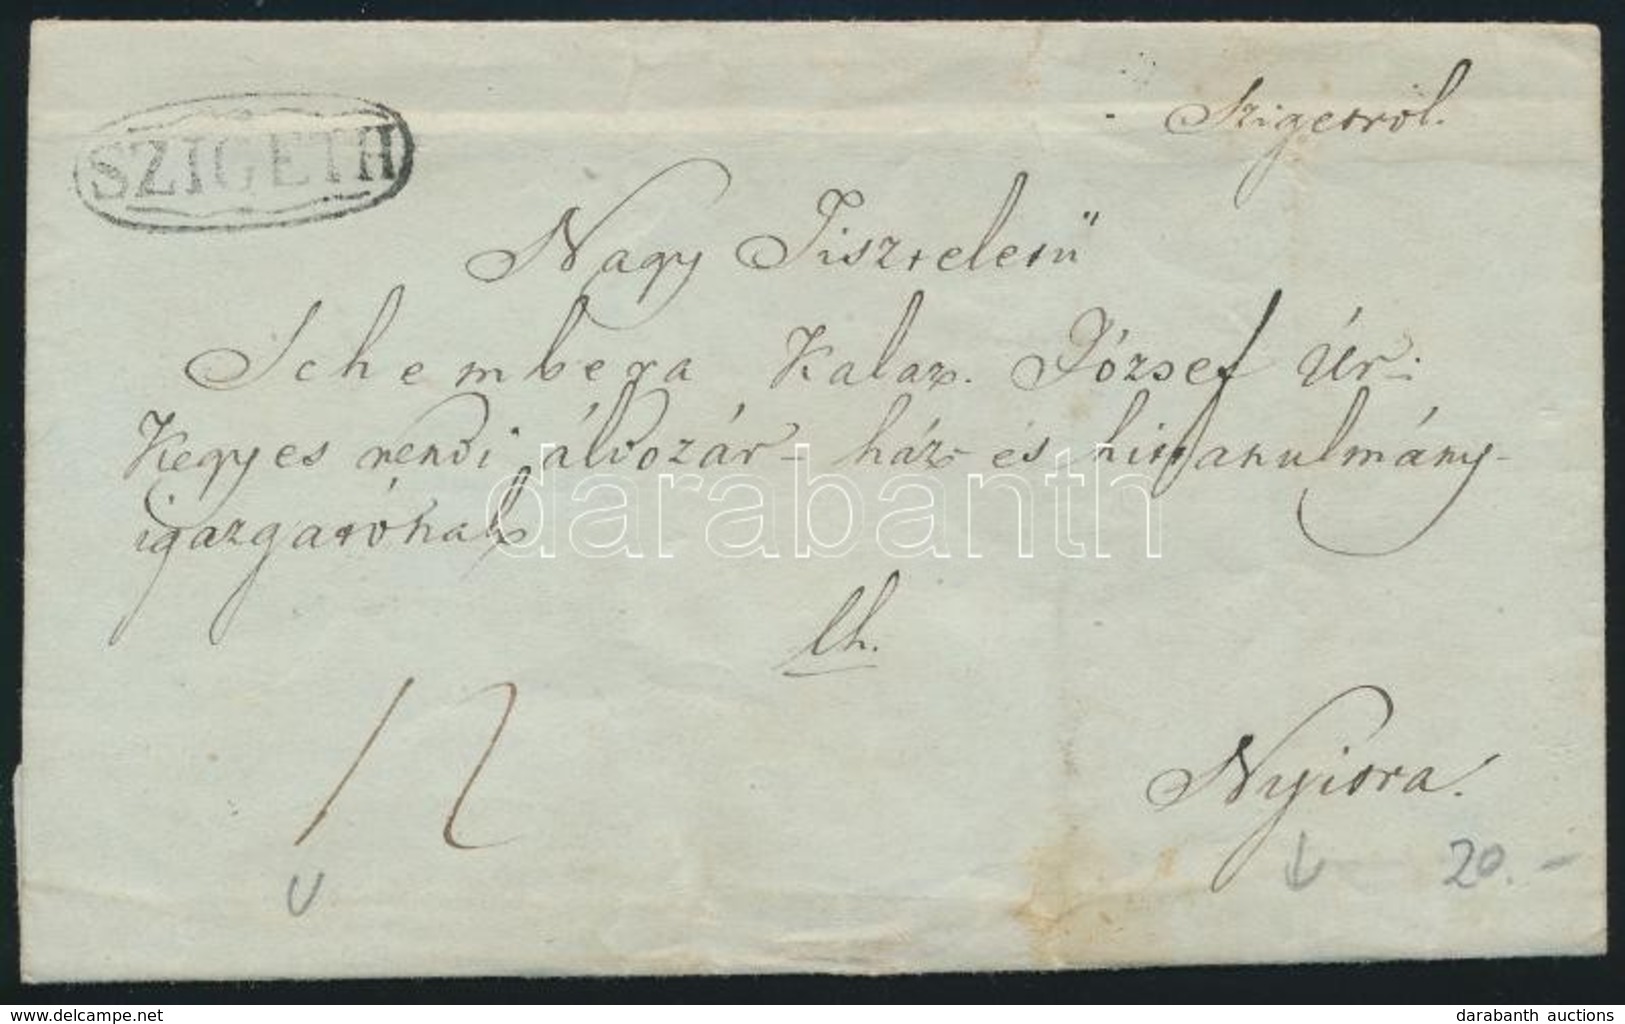 SZIGETH
Szigetről.
Nagy Tiszteletű
Schembera Kalaz. József Úr:
Kegyes rendi áldozár- ház és hittanulmány-
igazgatónak
lh.
12
Nyitra.
20.-
darabanth
delcampe.net
darabanth auctions